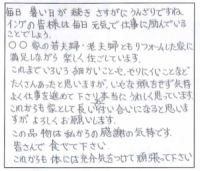 毎日 暑い日が続き さすがにうんざりですね。
イングの皆様は毎日元気で仕事に励んでいる
ことでしょう。
○○家の若夫婦・老夫婦ともリフォームした家に
満足しながら楽しく住ごしています。
これまでいろいろ細かいこと、せせりにくいことなど
たくさんあったと思いますが、いやな顔せず気持
よく仕事を進めて下さり本当にうれしく思っています。
これからも家として長い付い合いになると思いま
すが よろしくお願いします。
この品物は私からの感謝の気持です。
皆さんで 食べて下さい。
これからも 体には充分気をつけて頑張って下さい